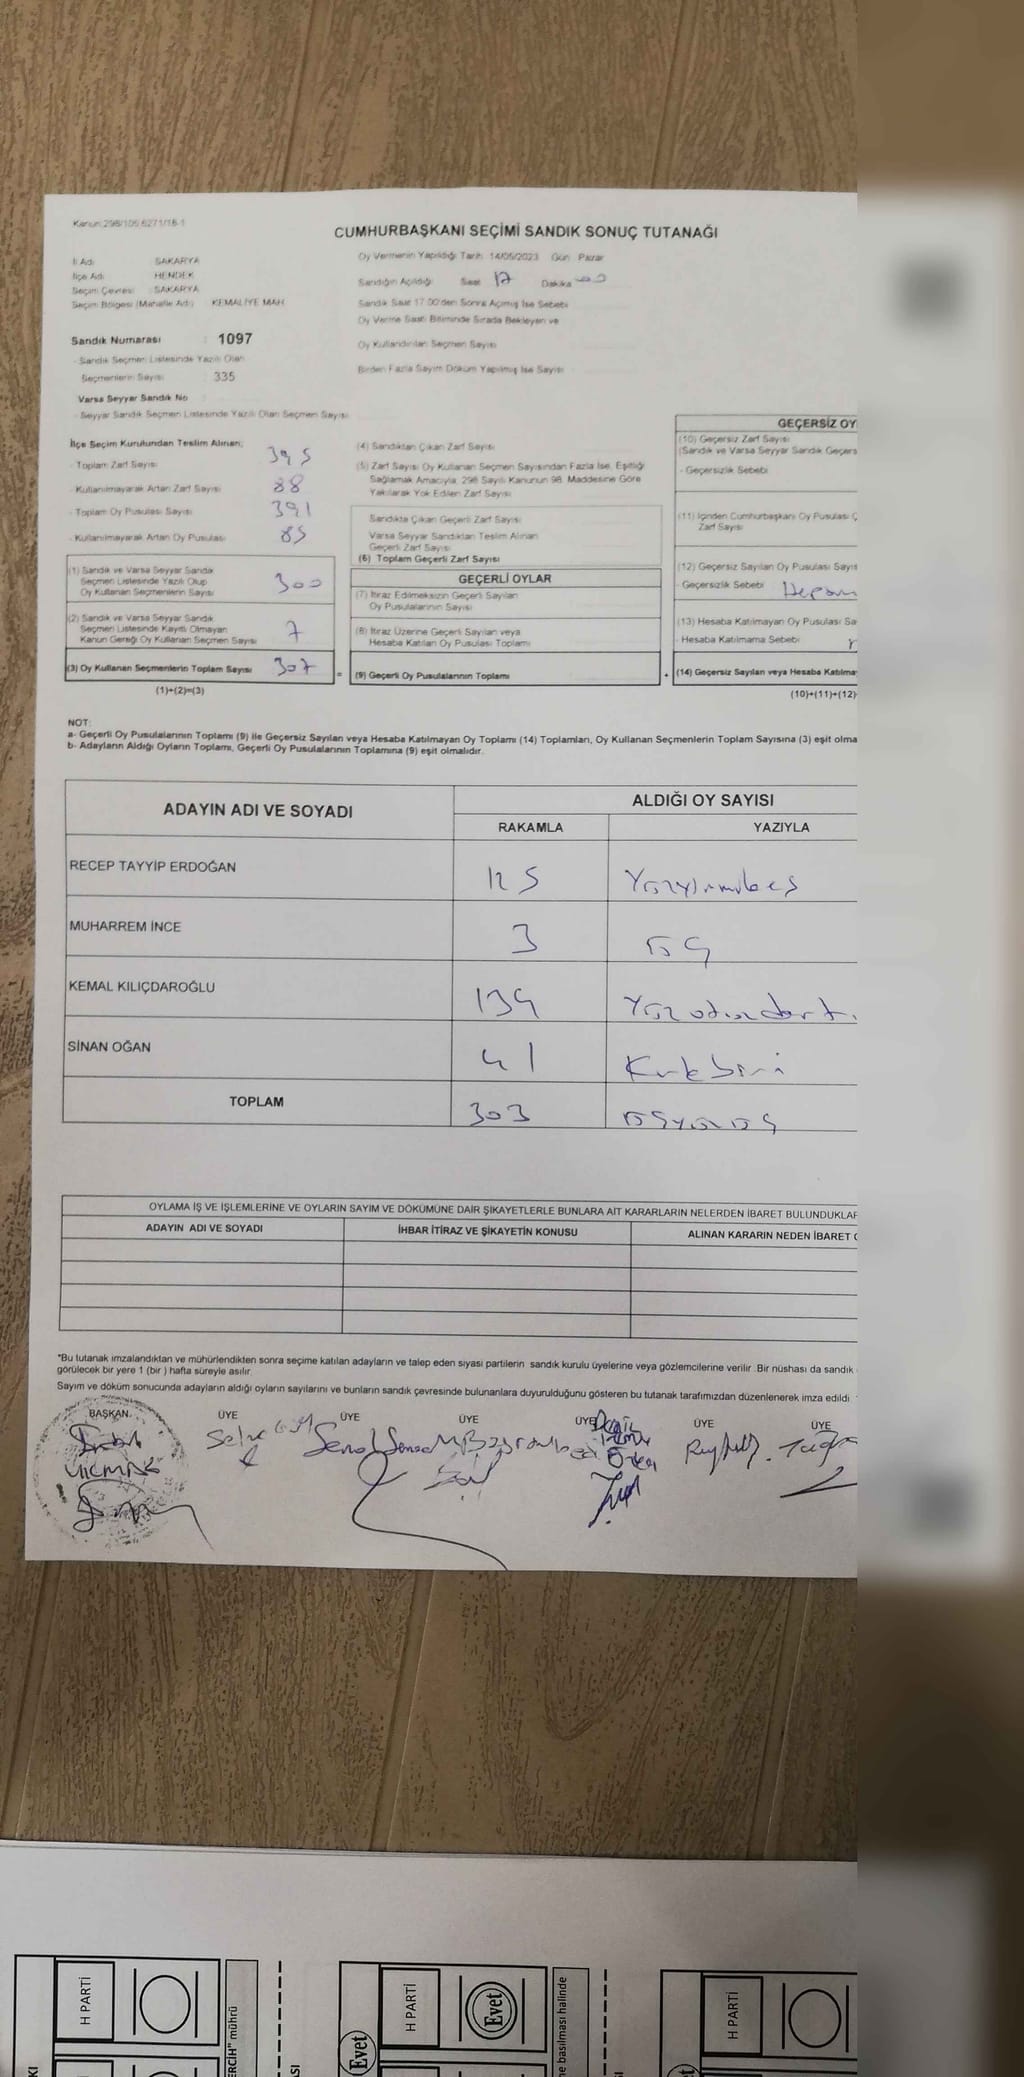 Kanun:298/105,6271/18-1
CUMHURBAŞKANI SEÇİMİ SANDIK SONUÇ TUTANAĞI
İl Adı SAKARYA
İlçe Adı HENDEK
Seçim Çevresi SAKARYA
Seçim Bölgesi (Mahalle Adı) KEMALİYE MAH
Sandık Numarası : 1097
- Sandık Seçmen Listesinde Yazılı Olan
Seçmenlerin Sayısı : 335
Varsa Seyyar Sandık No
- Seyyar Sandık Seçmen Listesinde Yazılı Olan Seçmen Sayısı
Oy Vermenin Yapıldığı Tarih: 14/05/2023 Gün Pazar
Sandığın Açıldığı Saat 17 Dakika 00
Sandık Saat 17.00'den Sonra Açılmış İse Sebebi
Oy Verme Saati Bitiminde Sırada Bekleyen ve
Oy Kullandırılan Seçmen Sayısı
Birden Fazla Sayım Döküm Yapılmış İse Sayısı
İlçe Seçim Kurulundan Teslim Alınan;
- Toplam Zarf Sayısı 395
- Kullanılmayarak Artan Zarf Sayısı 88
- Toplam Oy Pusulası Sayısı 391
- Kullanılmayarak Artan Oy Pusulası 85
(1) Sandık ve Varsa Seyyar Sandık
Seçmen Listesinde Yazılı Olup
Oy Kullanan Seçmenlerin Sayısı 300
(2) Sandık ve Varsa Seyyar Sandık
Seçmen Listesinde Kayıtlı Olmayan
Kanun Gereği Oy Kullanan Seçmen Sayısı 7
(3) Oy Kullanan Seçmenlerin Toplam Sayısı 307
(1)+(2)=(3)
(4) Sandıktan Çıkan Zarf Sayısı
(5) Zarf Sayısı Oy Kullanan Seçmen Sayısından Fazla İse, Eşitliği
Sağlamak Amacıyla, 298 Sayılı Kanunun 98. Maddesine Göre
Yakılarak Yok Edilen Zarf Sayısı
Sandıkta Çıkan Geçerli Zarf Sayısı
Varsa Seyyar Sandıktan Teslim Alınan
Geçerli Zarf Sayısı
(6) Toplam Geçerli Zarf Sayısı
=
GEÇERLİ OYLAR
(7) İtiraz Edilmeksizin Geçerli Sayılan
Oy Pusulalarının Sayısı
(8) İtiraz Üzerine Geçerli Sayılan veya
Hesaba Katılan Oy Pusulası Toplamı
(9) Geçerli Oy Pusulalarının Toplamı
+
GEÇERSİZ OY
(10) Geçersiz Zarf Sayısı
(Sandık ve Varsa Seyyar Sandık Geçers
- Geçersizlik Sebebi
(11) İçinden Cumhurbaşkanı Oy Pusulası Ç
Zarf Sayısı
(12) Geçersiz Sayılan Oy Pusulası Sayıs
- Geçersizlik Sebebi
(13) Hesaba Katılmayan Oy Pusulası Sa
- Hesaba Katılmama Sebebi
(14) Geçersiz Sayılan veya Hesaba Katılma
(10)+(11)+(12)+
NOT:
a- Geçerli Oy Pusulalarının Toplamı (9) ile Geçersiz Sayılan veya Hesaba Katılmayan Oy Toplamı (14) Toplamları, Oy Kullanan Seçmenlerin Toplam Sayısına (3) eşit olma
b- Adayların Aldığı Oyların Toplamı, Geçerli Oy Pusulalarının Toplamına (9) eşit olmalıdır.
ADAYIN ADI VE SOYADI
ALDIĞI OY SAYISI
RAKAMLA YAZIYLA
RECEP TAYYİP ERDOĞAN 125 Yüzyirmibeş
MUHARREM İNCE 3 üç
KEMAL KILIÇDAROĞLU 134 Yüzotuzdört
SİNAN OĞAN 41 Kırkbir
TOPLAM 303 üçyüzüç
OYLAMA İŞ VE İŞLEMLERİNE VE OYLARIN SAYIM VE DÖKÜMÜNE DAİR ŞİKAYETLERLE BUNLARA AİT KARARLARIN NELERDEN İBARET BULUNDUKLAR
ADAYIN ADI VE SOYADI İHBAR İTİRAZ VE ŞİKAYETİN KONUSU ALINAN KARARIN NEDEN İBARET O
*Bu tutanak imzalandıktan ve mühürlendikten sonra seçime katılan adayların ve talep eden siyasi partilerin sandık kurulu üyelerine veya gözlemcilerine verilir. Bir nüshası da sandık
görülecek bir yere 1 (bir ) hafta süreyle asılır
Sayım ve döküm sonucunda adayların aldığı oyların sayılarını ve bunların sandık çevresinde bulunanlara duyurulduğunu gösteren bu tutanak tarafımızdan düzenlenerek imza edildi
BAŞKAN ÜYE ÜYE ÜYE ÜYE ÜYE ÜYE
H PARTİ
ERCİH" mührü
Evet
H PARTİ
Evet
ne basılması halinde
H PARTİ